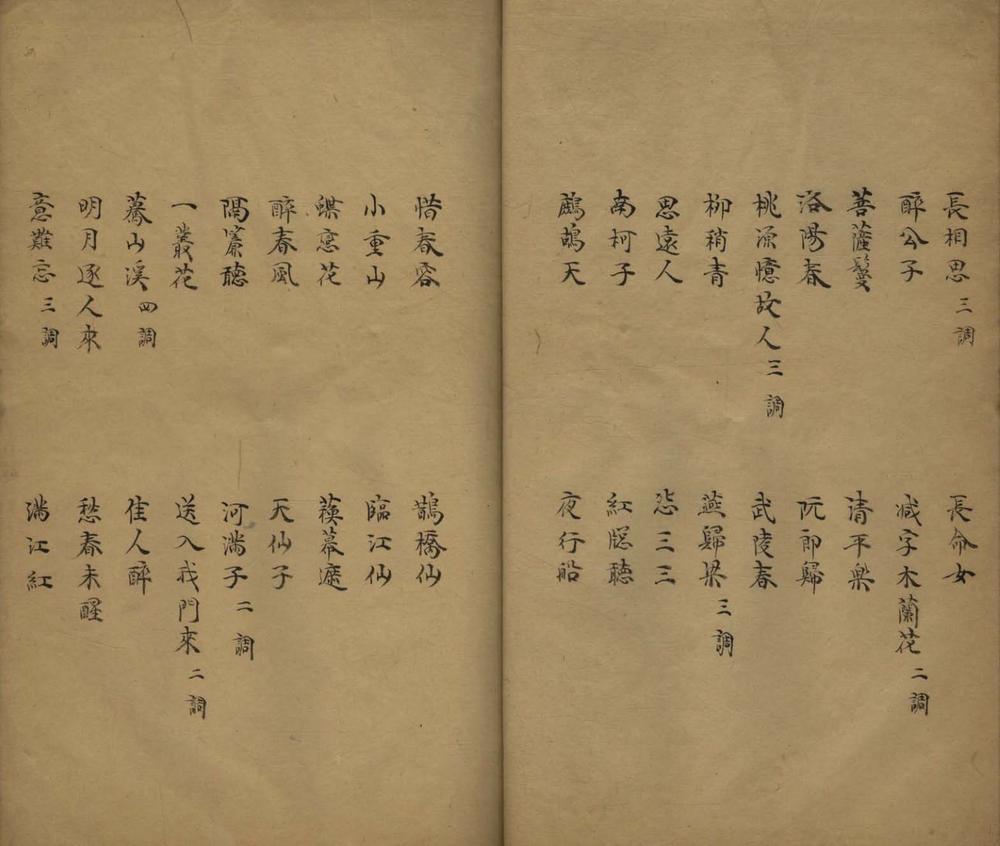 長相思 三調
長命女
醉公子
减字木蘭花 二調
菩薩鬘
清平樂
洛陽春
阮郎歸
桃源憶故人 三調
武陵春
柳稍青
燕歸梁 三調
思遠人
怨三三
南柯子
紅窓聽
鷓鴣天
夜行船
惜春容
鵲橋仙
小重山
臨江仙
蝶戀花
蘇幕遮
醉春風
天仙子
隔簾聽
河滿子 二調
一叢花
送入我門來 二調
驀山溪 四調
佳人醉
明月逐人來
愁春未醒
意難忘 三調
滿江紅